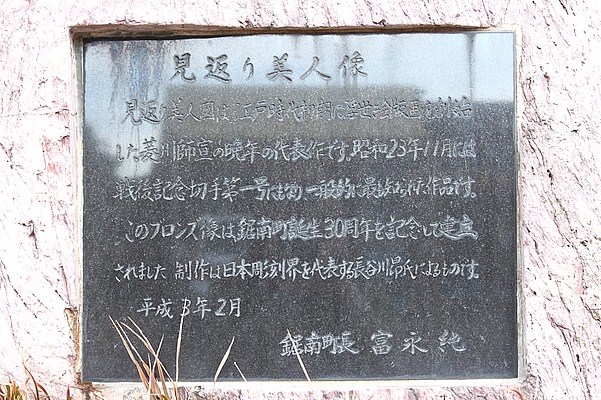 見返り美人像
見返り美人図は、江戸時代初期に浮世絵版画を創始
した菱川師宣の晩年の代表作です。昭和23年11月には
戦後記念切手第一号になり、一般的に最も知られた作品です。
このブロンズ像は鋸南町誕生30周年を記念して建立
されました。制作は日本彫刻界を代表する長谷川昂氏によるものです。
平成3年2月
鋸南町長 富永純